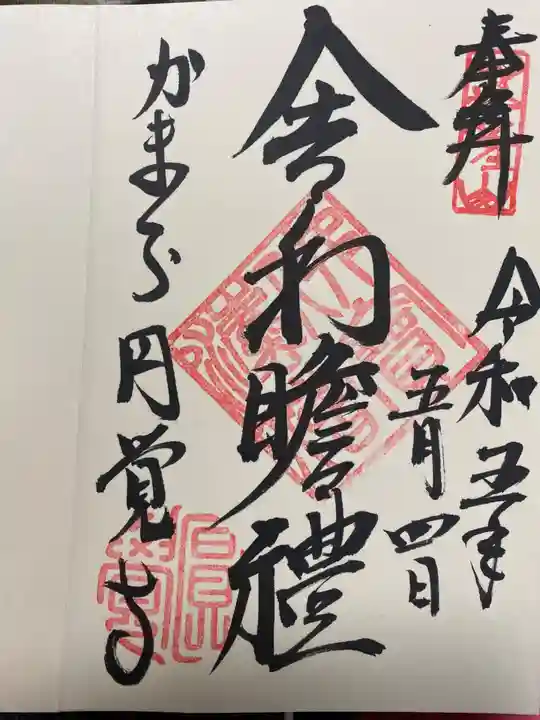 奉拝
令和五年
五月四日
舎利瞻禮
かまくら
円覚寺